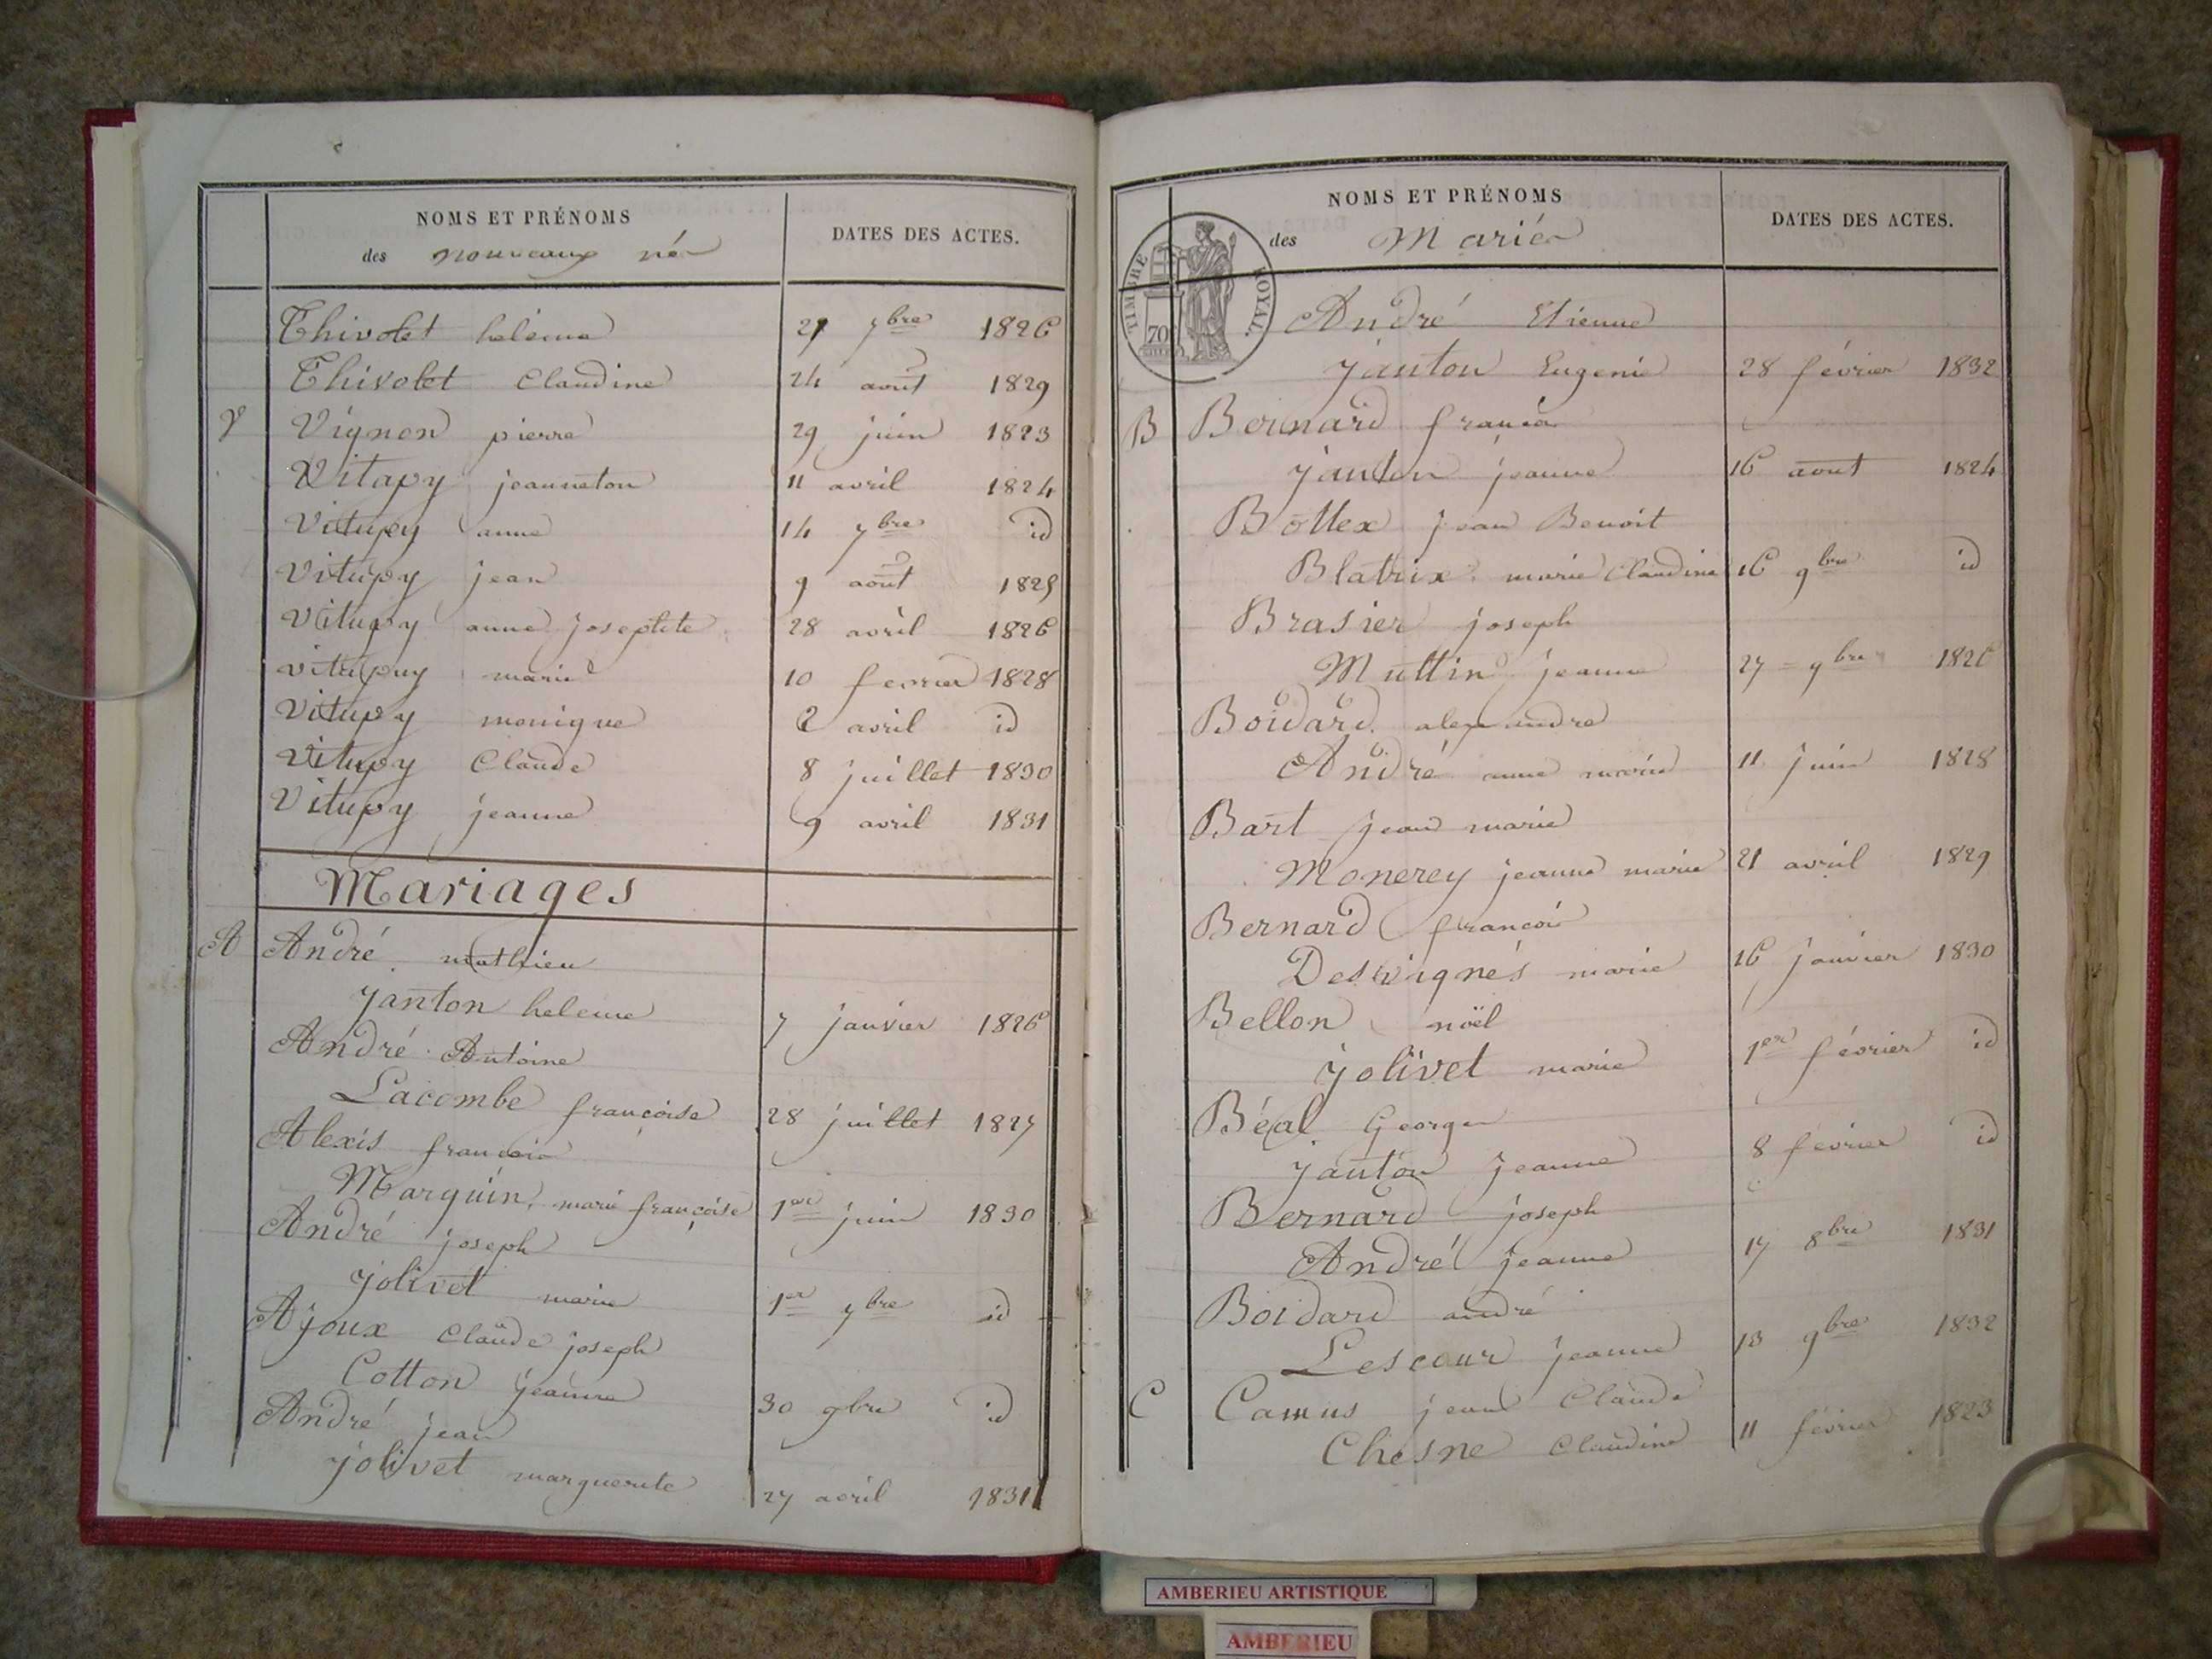 NOMS ET PRÉNOMS
des nouveaux nés
DATES DES ACTES.
Thivolet heléine 27 7bre 1826
Thivolet Claudine 24 août 1829
V Vignon pierre 29 juin 1823
Vitapy jeanneton 11 avril 1824
Vitupy anne 14 7bre id
Vitupy jean 9 août 1825
Vitupy anne josephte 28 avril 1826
vitupuy marie 10 fevrier 1828
Vitupy monique 2 avril id
Vitupy Claude 8 juillet 1830
Vitupy jeanne 9 avril 1831
Mariages
A André mathieu
janton heleine 7 janvier 1826
André Antoine
Lacombe françoise 28 juillet 1827
Alexis francois
Marguin marie françoise 1er juin 1830
André joseph
jolivet marie 1er 7bre id
Ajoux Claude joseph
Cotton jeanne 30 9bre id
André jean
jolivet marguerite 27 avril 1831
NOMS ET PRÉNOMS
des Mariés
DATES DES ACTES.
TIMBRE ROYAL
70c
André Etienne
janton Eugenie 28 février 1832
B Bernard francois
janton jeanne 16 aout 1824
Bottex jean Benoit
Blatrix marie Claudine 16 9bre id
Brasier joseph
Muttin jeanne 27 = 9bre 1826
Boidard alexandre
André anne marie 11 juin 1828
Bart jean marie
Monerey jeanne marie 21 avril 1829
Bernard françois
Desvignes marie 16 janvier 1830
Bellon noël
jolivet marie 1er février id
Béal George
janton jeanne 8 fevrier id
Bernard joseph
André jeanne 17 8bre 1831
Boidard andré
Lescour jeanne 13 9bre 1832
C Camus jean Claude
Chesne Claudine 11 février 1823
AMBERIEU ARTISTIQUE
AMBERIEU